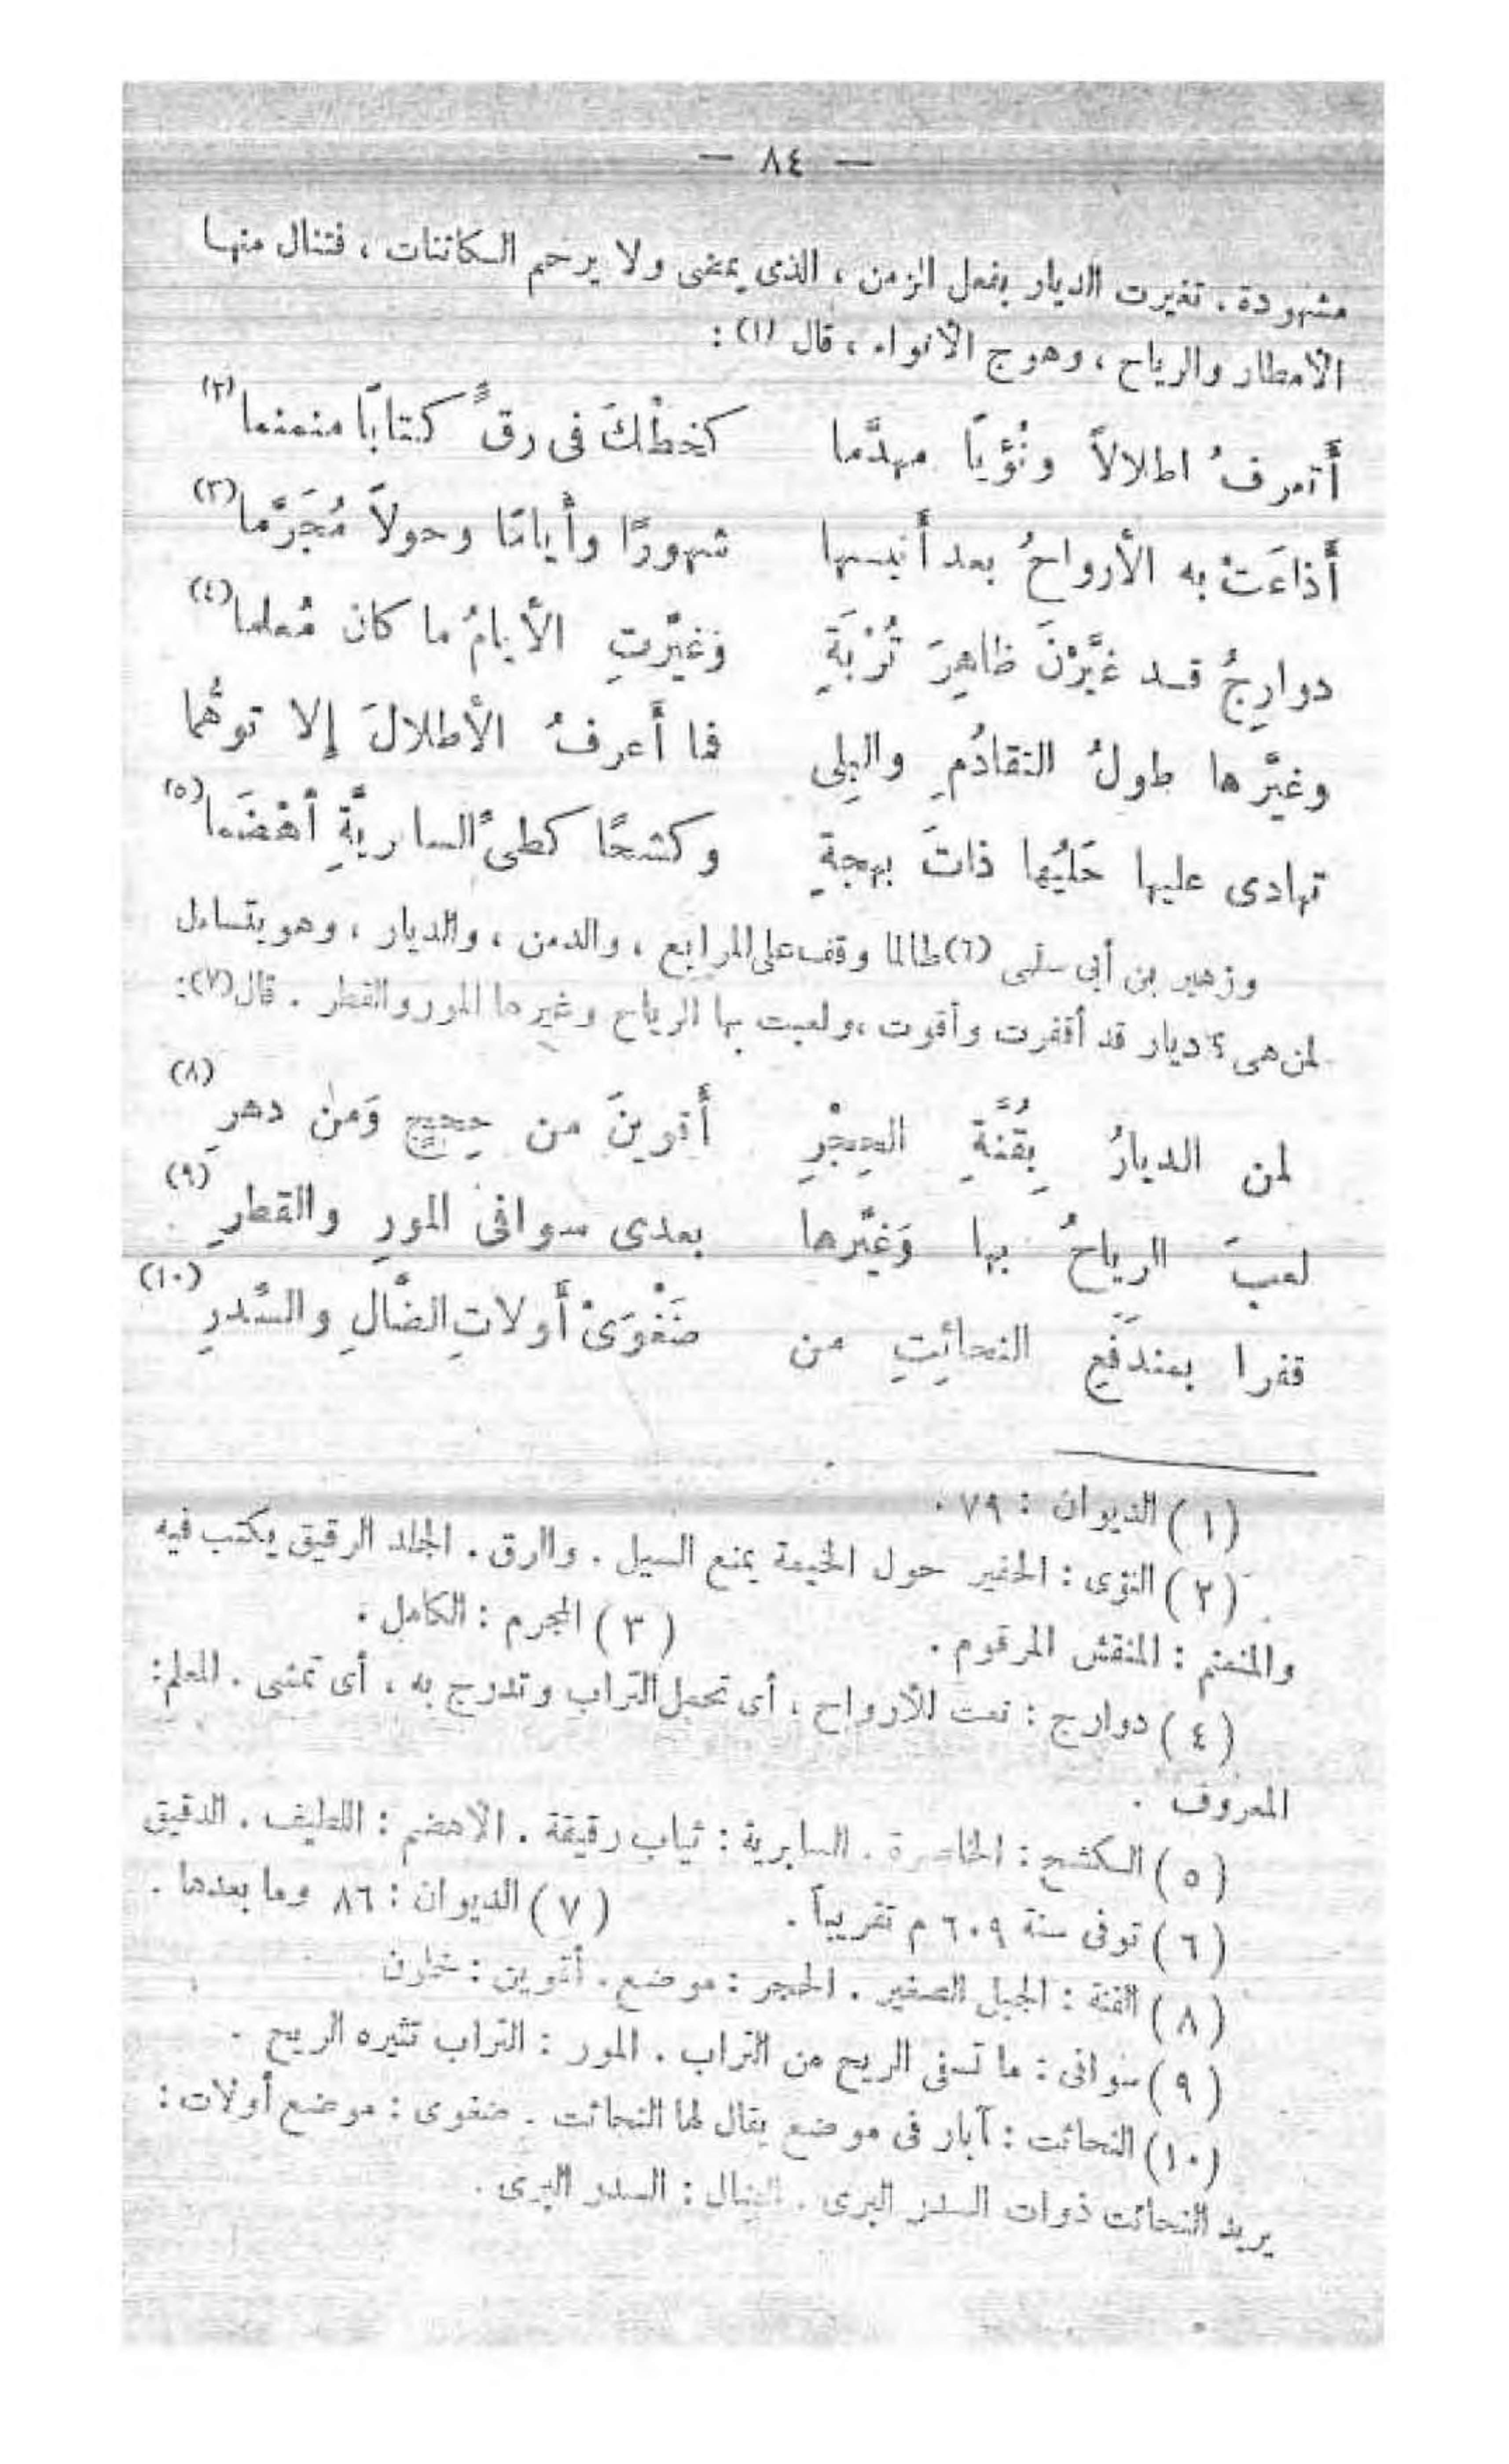 — ٨٤ —
مشهودة . تغيرت الديار بفعل الزمن ، الذى يمضى ولا يرحم الكائنات ، فتنال منها
الأمطار والرياح ، وهوج الأنواء ، قال (١) :
أَتعرفُ اطلالاً ونُؤياً مهدَّما كخطْكَ فى رقٍّ كتابًا منمنما(٢)
أَذاعَتْ به الأرواحُ بعد أَنيسها شهورًا وأَيامًا وحولاً مُجَرَّما(٣)
دوارِجُ قد غيَّرْنَ ظاهِرَ تُرْبَةٍ وَغيَّرتِ الأَيامُ ما كان مُعلما(٤)
وغيَّرها طولُ التقادُمِ والبِلى فما أَعرفُ الأَطلالَ إلا توهُّما
تهادى عليها حَليُها ذاتَ بهجةٍ وكشحًا كطىِّ السابريَّةِ أهْضَما(٥)
وزهير بن أبى سلمى (٦) طالما وقف على المرابع ، والدمن ، والديار ، وهو يتساءل
لمن هى ؟ ديار قد أقفرت وأقوت ، ولعبت بها الرياح وغيرها المور والقطر . قال(٧):
لمن الديارُ بِقُنَّةِ الحِجْرِ أَقوينَ من حِججٍ وَمن دهرِ (٨)
لعبَ الرياحُ بها وَغيَّرها بعدى سوافى المورِ والقطرِ (٩)
قفرا بمندَفَعِ النحائِتِ من ضَفْوَىْ أَولاتِ الضَّالِ والسِّدرِ (١٠)
(١) الديوان : ٧٩ .
(٢) النؤى : الحفير حول الخيمة يمنع السيل . والرق . الجلد الرقيق يكتب فيه
والمنمنم : المنقش المرقوم . (٣) المجرم : الكامل .
(٤) دوارج : نعت للأرواح ، أى تحمل التراب وتدرج به ، أى تمشى . المعلم:
المعروف .
(٥) الكشح : الخاصرة . السابرية : ثياب رقيقة . الأهضم : اللطيف . الدقيق
(٦) توفى سنة ٦٠٩ م تقريباً . (٧) الديوان : ٨٦ وما بعدها .
(٨) القنة : الجبل الصغير . الحجر : موضع . أقوين :
(٩) سوافى : ما تسفى الريح من التراب . المور : التراب تثيره الريح .
(١٠) النحائت : آبار فى موضع يقال لها النحائت . ضفوى : موضع أولات :
يريد النحائت ذوات السدر البرى . الضال : السدر البرى .